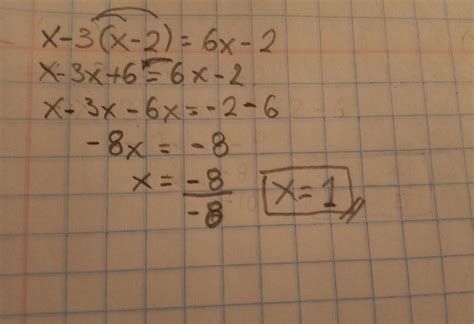 x-3(x-2)=6x-2
x-3x+6=6x-2
x-3x-6x=-2-6
-8x = -8
x = -8/-8 x=1